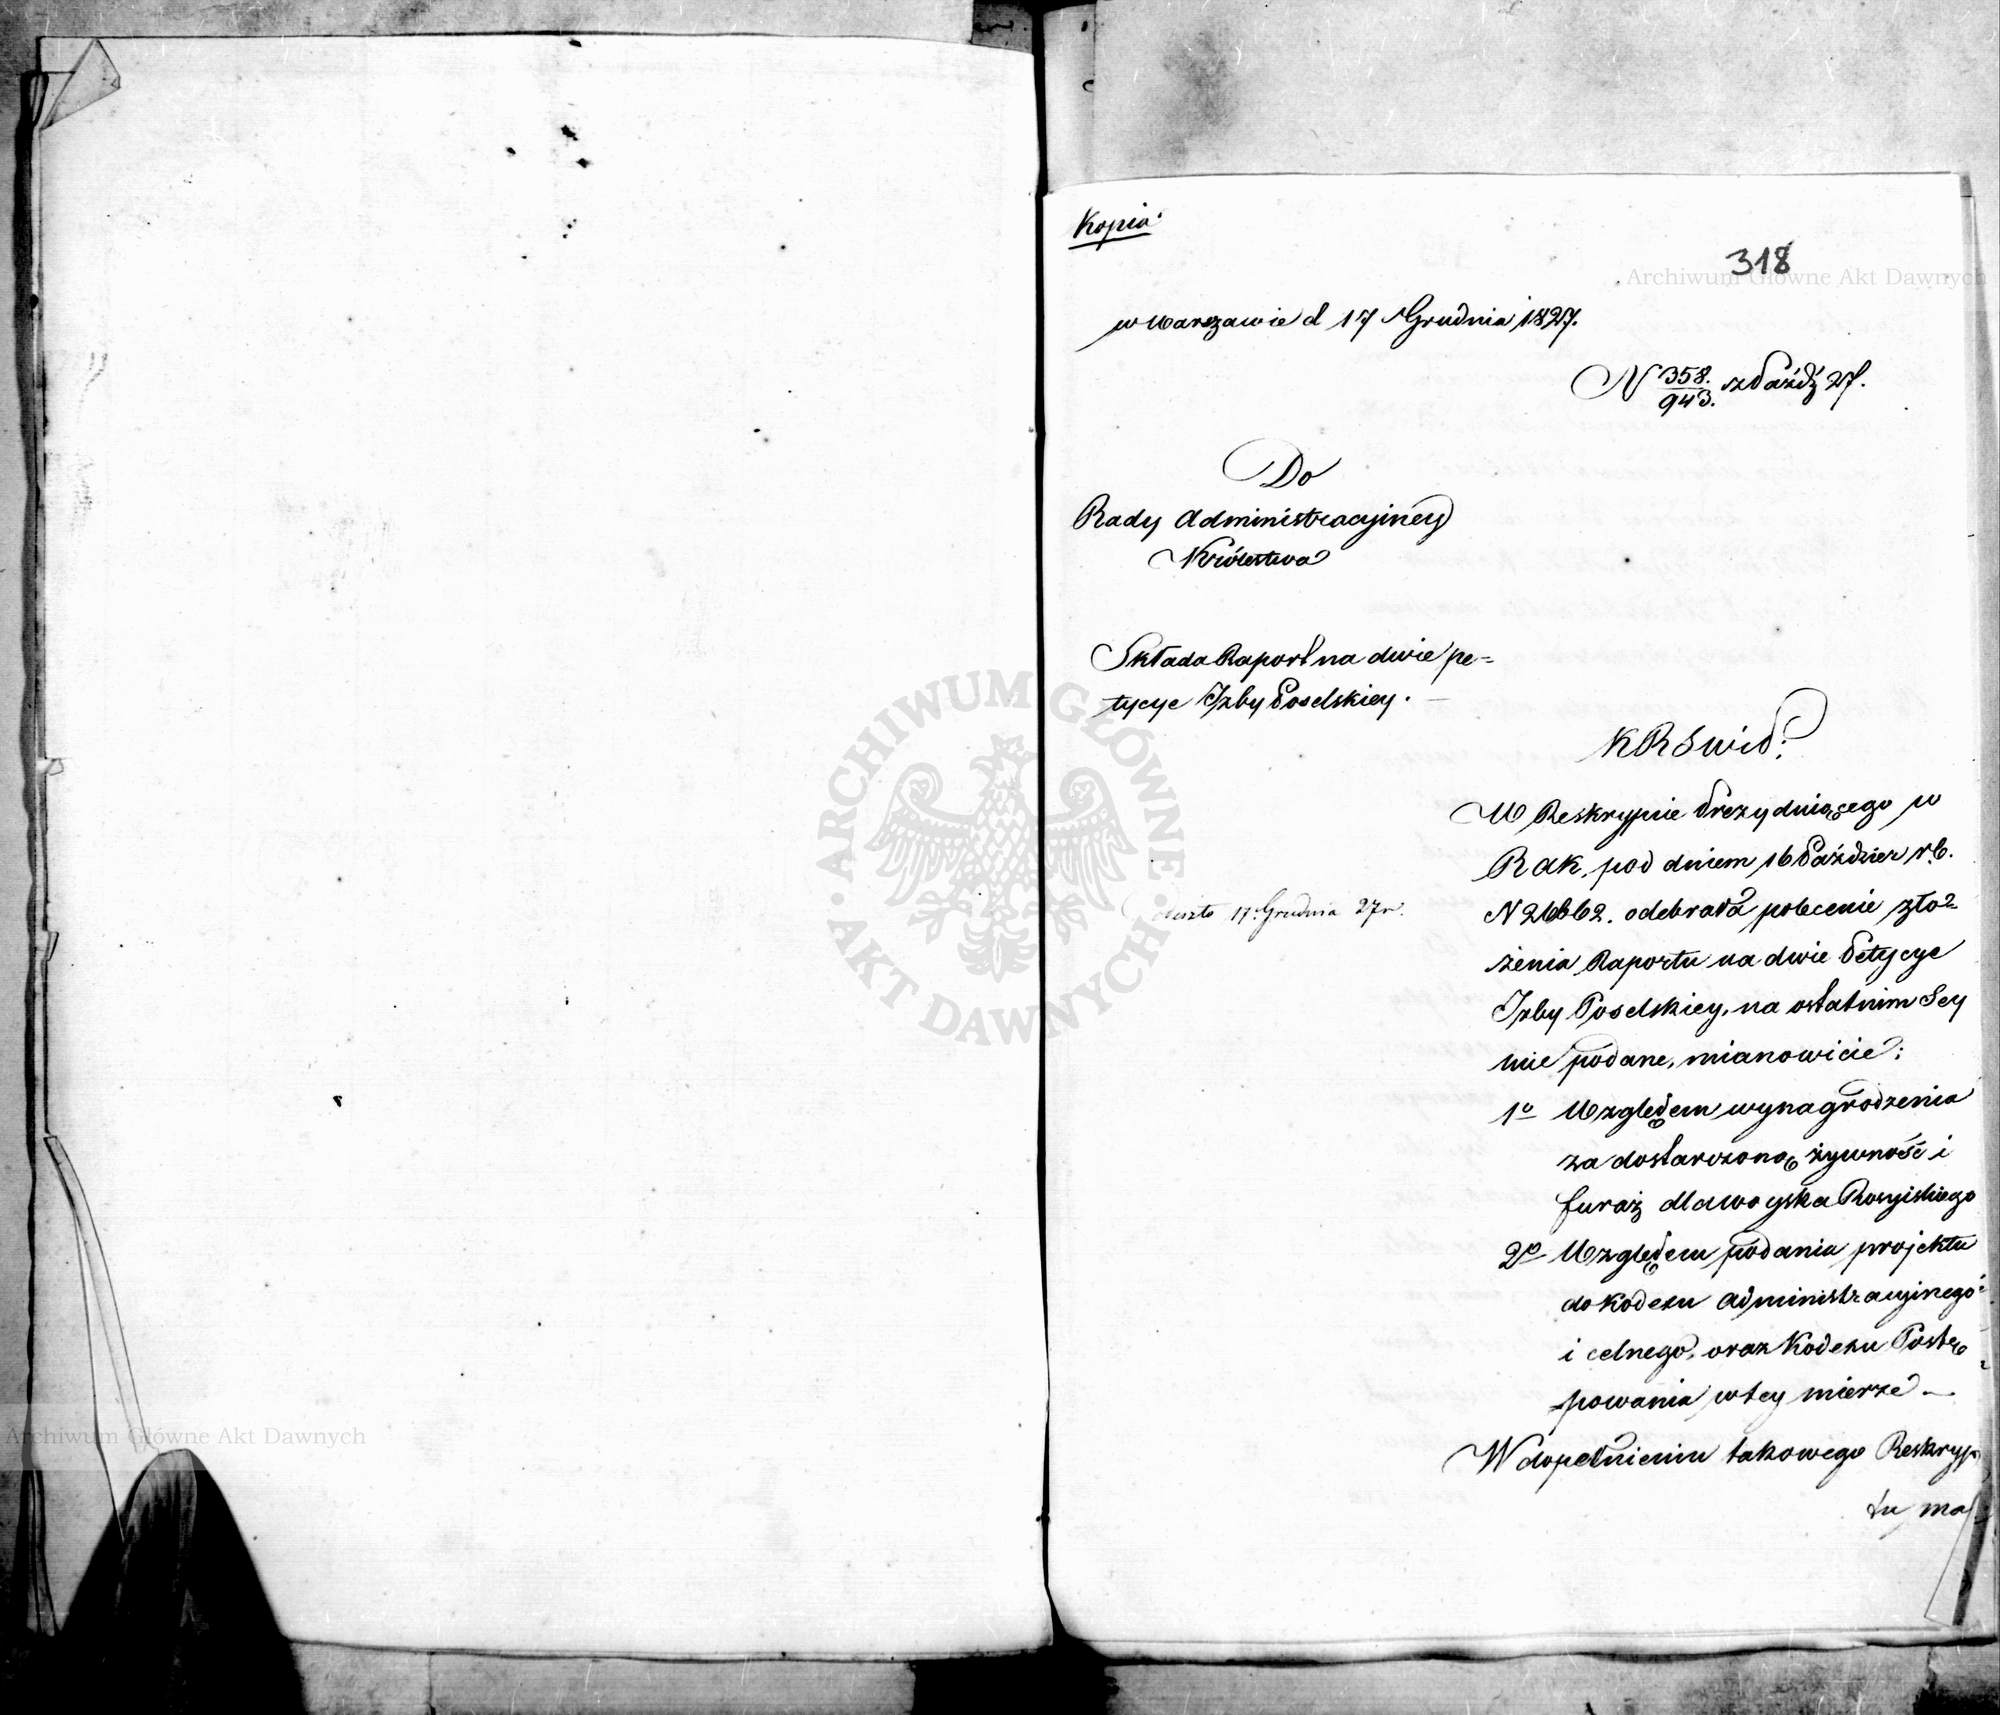 Kopia
318
w Warszawie d 17 Grudnia 1827.
N 358./943. z Paźdź 27.
Do
Rady Administracyiney
Królestwa
Składa Raport na dwie pe=
tycye Izby Poselskiey. —
K R S W i D:
W Reskrypcie Prezyduiącego w
R AK, pod dniem 16 Paździer r.b.
N odebrała polecenie zło=
żenia Raportu na dwie Petycye
Izby Poselskiey, na ostatnim Sey
mie podane, mianowicie:
1o Względem wynagrodzenia
za dostarczoną żywność i
furaż dla woyska Rosyiskiego
2o Względem podania projektu
do Kodexu Administracyinego
i celnego, oraz Kodexu Postę
powania w tey mierze —
W dopełnieniu takowego Reskryp
tu ma
17 Grudnia 27 r.
Archiwum Główne Akt Dawnych
Archiwum Główne Akt Dawnych
ARCHIWUM GŁÓWNE · AKT DAWNYCH ·